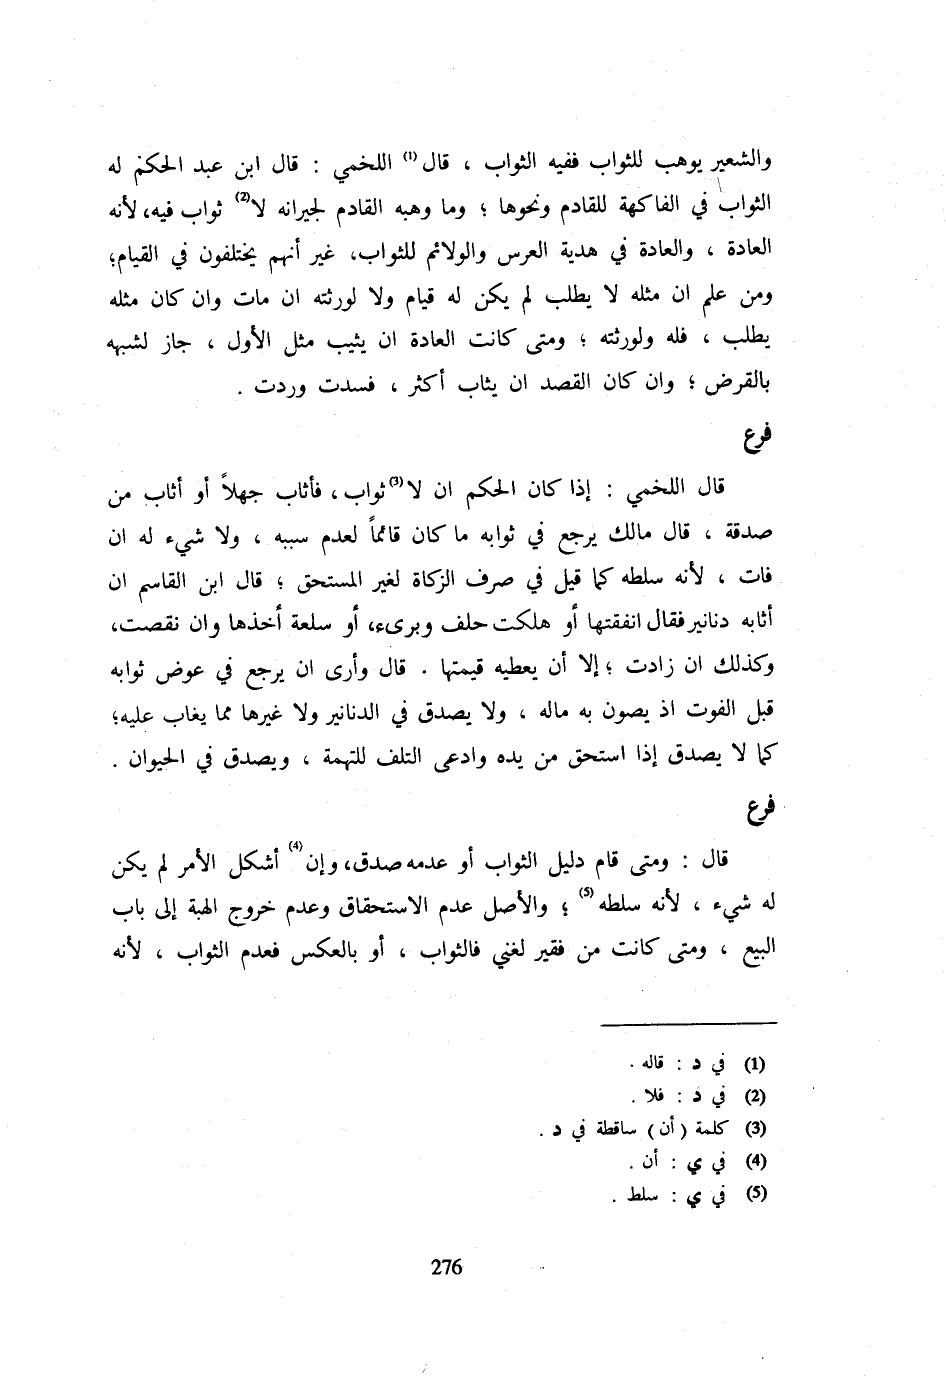 والشعير يوهب للثواب ففيه الثواب ، قال (1) اللخمي : قال ابن عبد الحكم له
الثواب في الفاكهة للقادم ونحوها ؛ وما وهبه القادم لجيرانه لا (2) ثواب فيه، لأنه
العادة ، والعادة في هدية العرس والولائم للثواب، غير أنهم يختلفون في القيام؛
ومن علم ان مثله لا يطلب لم يكن له قيام ولا لورثته ان مات وان كان مثله
يطلب ، فله ولورثته ؛ ومتى كانت العادة ان يثيب مثل الأول ، جاز لشبهه
بالقرض ؛ وان كان القصد ان يثاب أكثر ، فسدت وردت .
فرع
قال اللخمي : إذا كان الحكم ان لا (3) ثواب ، فأثاب جهلاً أو أثاب من
صدقة ، قال مالك يرجع في ثوابه ما كان قائماً لعدم سببه ، ولا شيء له ان
فات ، لأنه سلطه كما قيل في صرف الزكاة لغير المستحق ؛ قال ابن القاسم ان
أثابه دنانير فقال انفقتها أو هلكت حلف وبرىء، أو سلعة أخذها وان نقصت،
وكذلك ان زادت ؛ إلا أن يعطيه قيمتها . قال وأرى ان يرجع في عوض ثوابه
قبل الفوت اذ يصون به ماله ، ولا يصدق في الدنانير ولا غيرها مما يغاب عليه؛
كما لا يصدق إذا استحق من يده وادعى التلف للتهمة ، ويصدق في الحيوان .
فرع
قال : ومتى قام دليل الثواب أو عدمه صدق، وإن (4) أشكل الأمر لم يكن
له شيء ، لأنه سلطه (5) ؛ والأصل عدم الاستحقاق وعدم خروج الهبة إلى باب
البيع ، ومتى كانت من فقير لغني فالثواب ، أو بالعكس فعدم الثواب ، لأنه
(1) في د : قاله .
(2) في د : فلا .
(3) كلمة ( أن ) ساقطة في د .
(4) في ي : أن .
(5) في ي : سلط .
276